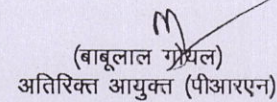 (बाबूलाल गोयल)
अतिरिक्त आयुक्त (पीआरएन)